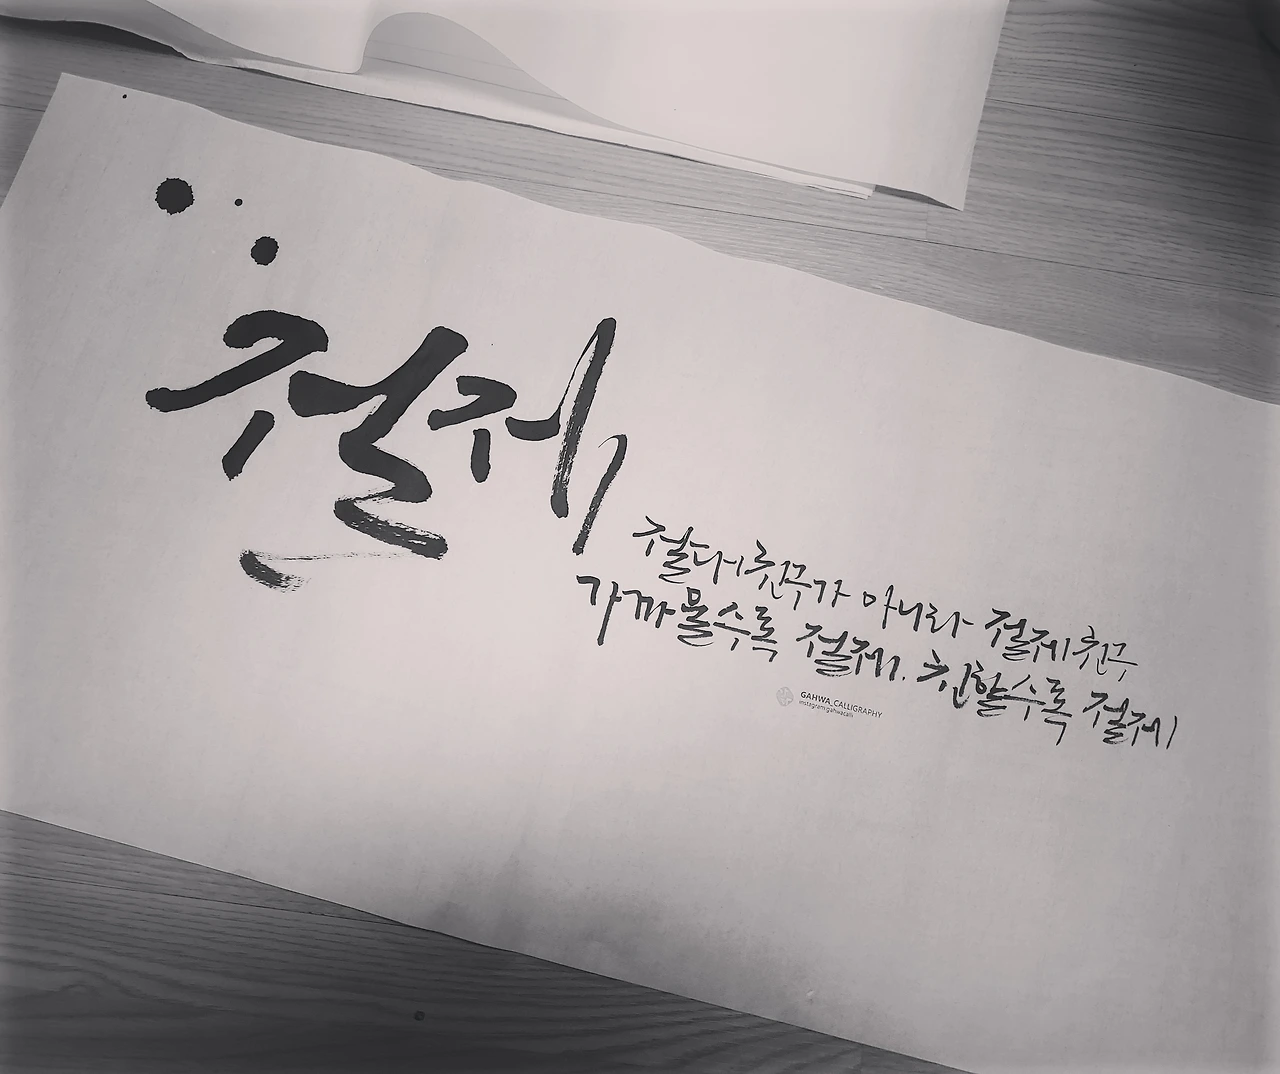 절제,
절대친구가 아니라 절제친구
가까울수록 절제. 친할수록 절제
GAHWA_CALLIGRAPHY
instagram:gahwacalli